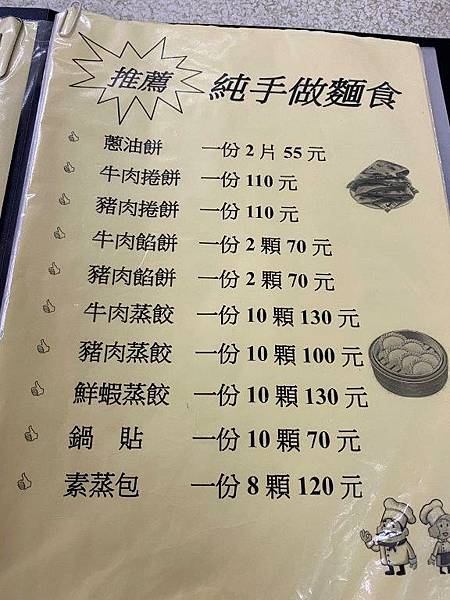 推薦 純手做麵食
蔥油餅 一份 2 片 55 元
牛肉捲餅 一份 110 元
豬肉捲餅 一份 110 元
牛肉餡餅 一份 2 顆 70 元
豬肉餡餅 一份 2 顆 70 元
牛肉蒸餃 一份 10 顆 130 元
豬肉蒸餃 一份 10 顆 100 元
鮮蝦蒸餃 一份 10 顆 130 元
鍋 貼 一份 10 顆 70 元
素蒸包 一份 8 顆 120 元